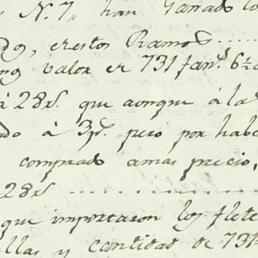 N. 7,, han Ganado lo
dō, erestos Ramos
valor er 731 fan.s 6½
á 28 rs. que aunque á la
do á 3ps. pero por habe
comprado amas precio,
28 rs
que importaron los flete
llas y cantidad de 731